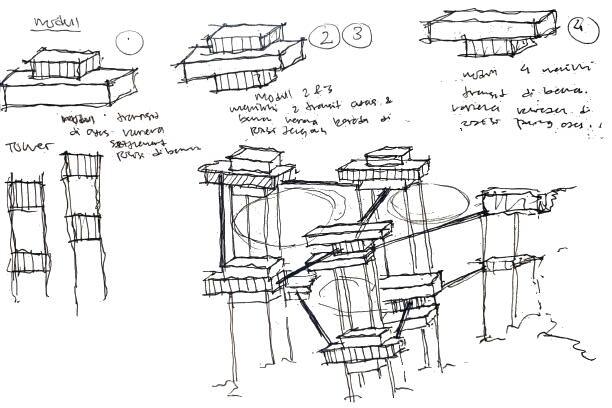 Modul
2 3
4
modul transit
di atas karena
di bawah
Tower
modul 2 & 3
memiliki 2 transit atas &
bawah karena berada di
posisi tengah
modul 4 memiliki
transit di bawah
karena berada di
posisi paling atas